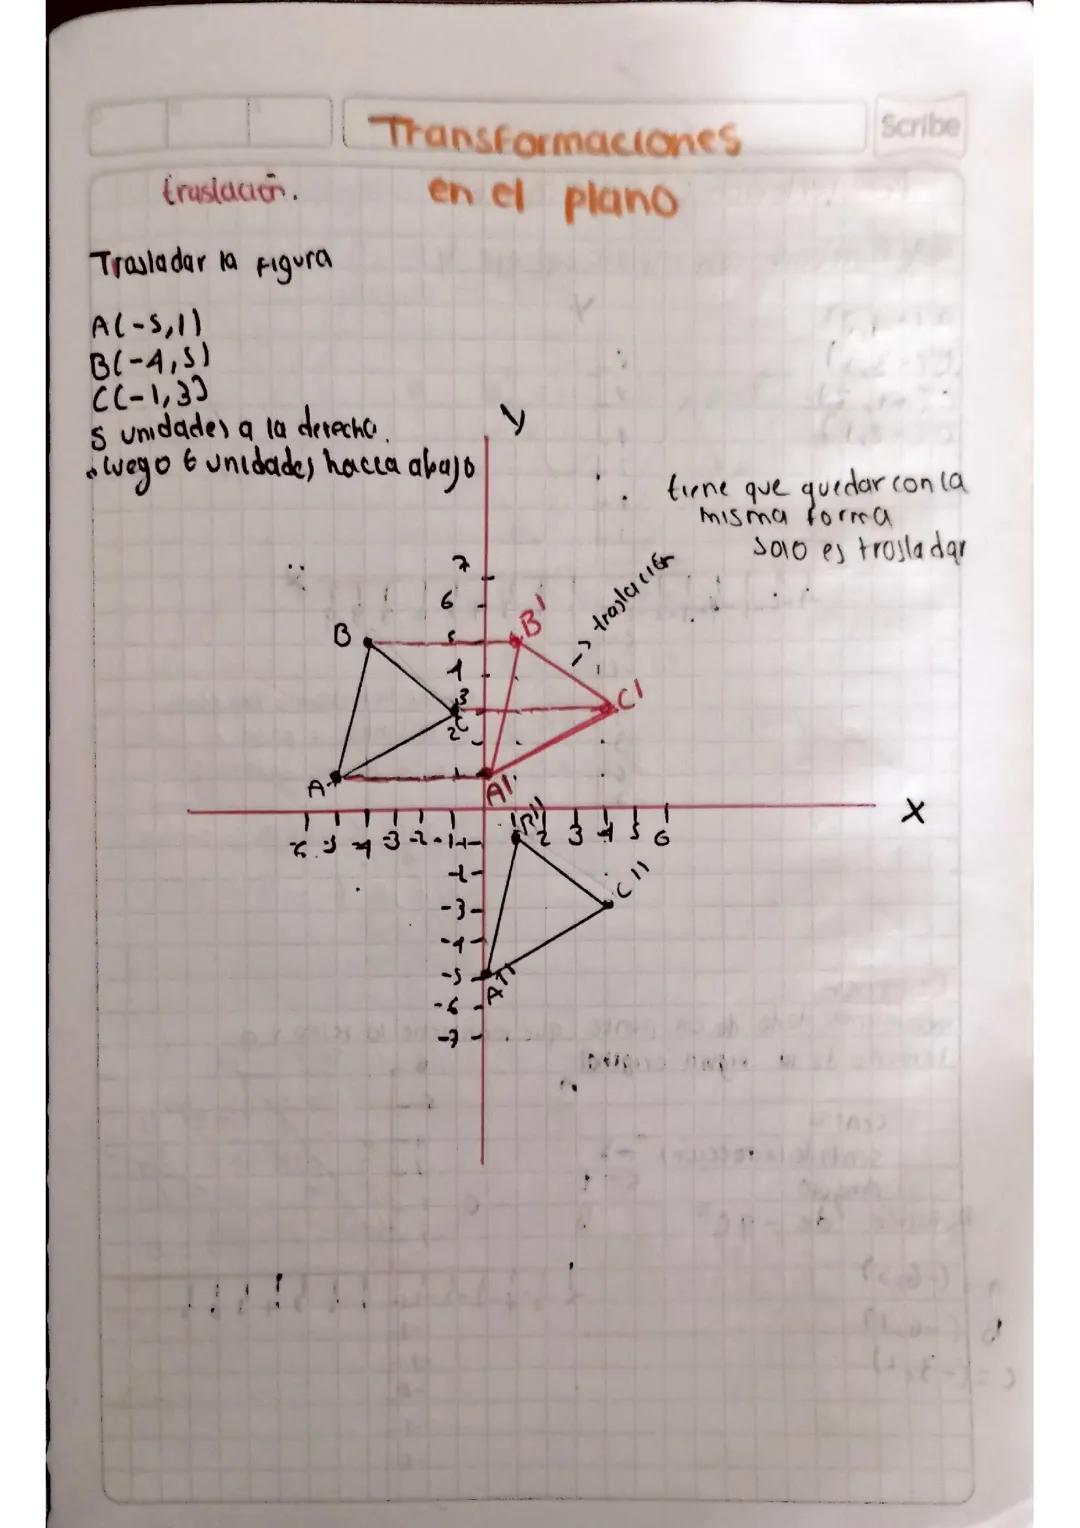 Transformaciones
Scribe
traslación.
en el plano
Trasladar la figura
A(-5,1)
B(-4,5)
C(-1,3)
5 unidades a la derecha.
luego 6 unidades hacia abajo
y
tiene que quedar con la
misma forma
solo es trasladar
-> traslación
7
6
B
5
B'
4
3
C
C'
2
A
1
A'
x
-6 -5 -4 -3 -2 -1
1 2 3 4 5 6
B''
-1
-2
C''
-3
-4
-5
A''
-6
-7